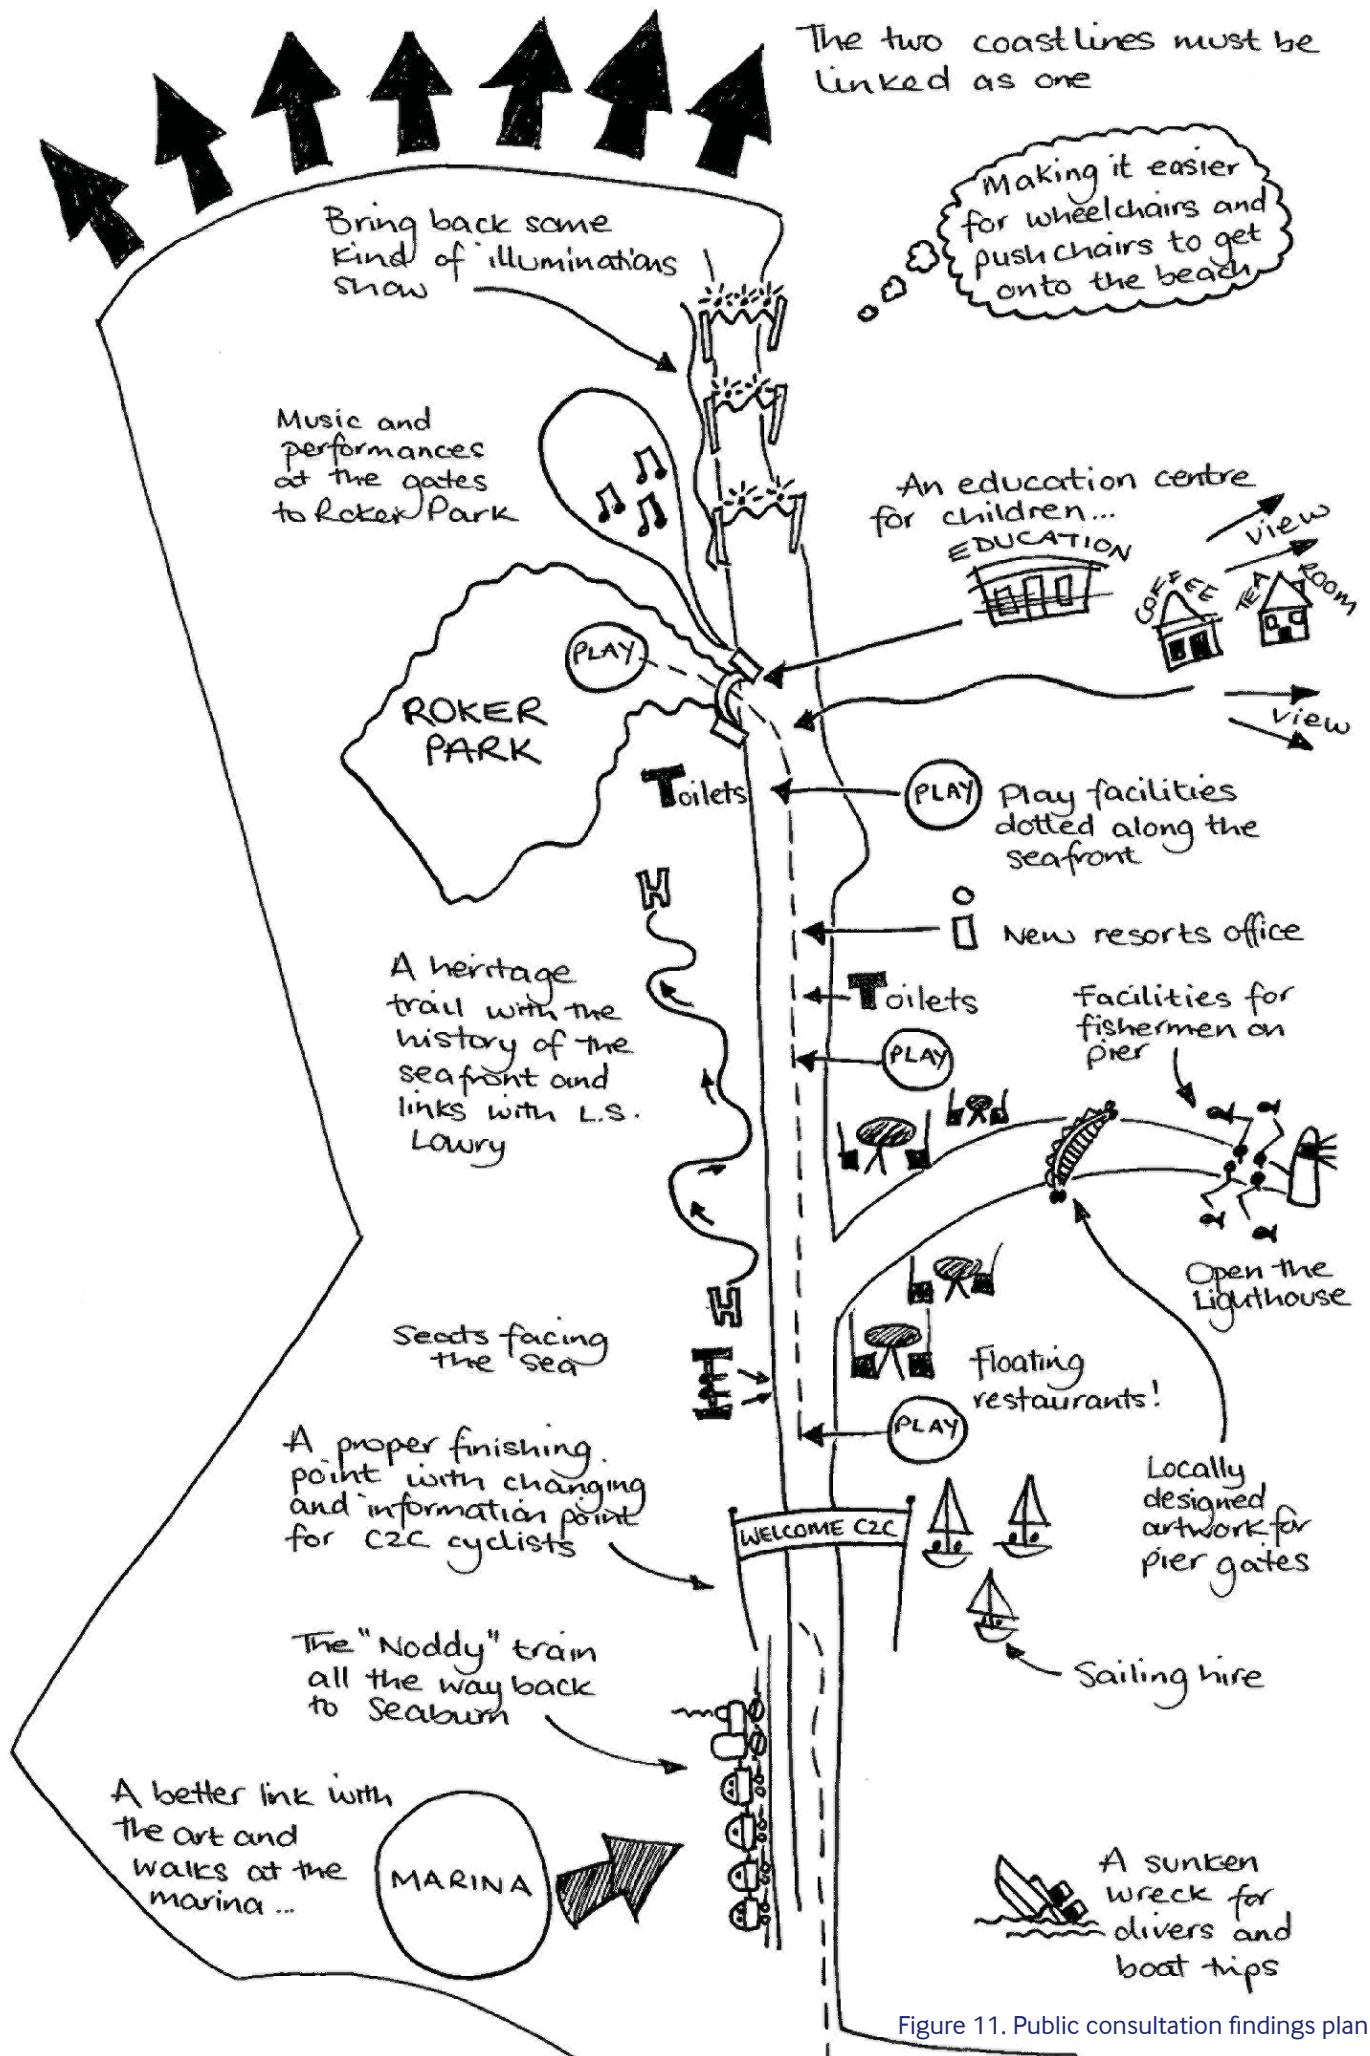 The two coastlines must be
linked as one
Making it easier
for wheelchairs and
pushchairs to get
onto the beach
Bring back some
kind of illuminations
show
Music and
performances
at the gates
to Roker Park
An education centre
for children...
EDUCATION
COFFEE
TEA ROOM
view
view
PLAY
ROKER
PARK
Toilets
PLAY
Play facilities
dotted along the
seafront
H
i
New resorts office
A heritage
trail with the
history of the
seafront and
links with L.S.
Lowry
Toilets
Facilities for
fishermen on
pier
PLAY
Open the
Lighthouse
H
Seats facing
the sea
Floating
restaurants!
PLAY
A proper finishing
point with changing
and information point
for C2C cyclists
WELCOME C2C
Locally
designed
artwork for
pier gates
The "Noddy" train
all the way back
to Seaburn
Sailing hire
A better link with
the art and
walks at the
marina...
MARINA
A sunken
wreck for
divers and
boat trips
Figure 11. Public consultation findings plan